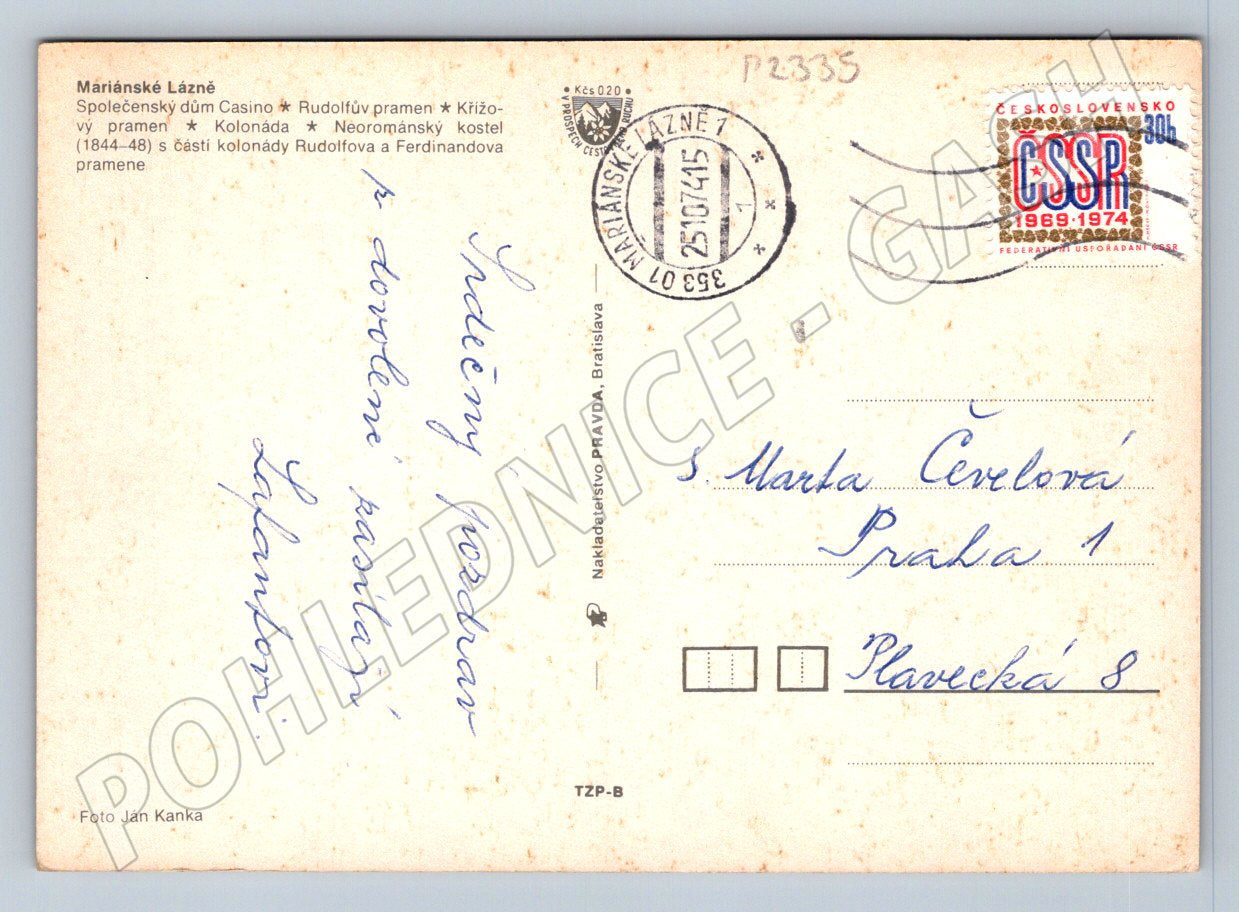 P2335
Mariánské Lázně
Společenský dům Casino ★ Rudolfův pramen ★ Křížo-
vý pramen ★ Kolonáda ★ Neorománský kostel
(1844–48) s částí kolonády Rudolfova a Ferdinandova
pramene
Kčs 0.20
V PROSPĚCH CESTOVNÍHO RUCHU
353 01 MARIÁNSKÉ LÁZNĚ 1
25107415
1
ČESKOSLOVENSKO
30h
ČSSR
1969·1974
FEDERATIVNÍ USPOŘÁDÁNÍ ČSSR
Srdečný pozdrav
z dovolené zasílají
Lafantovi.
Nakladateľstvo PRAVDA, Bratislava
S. Marta Čevelová
Praha 1
Plavecká 8
TZP-B
Foto Ján Kanka
POHLEDNICE - GASH